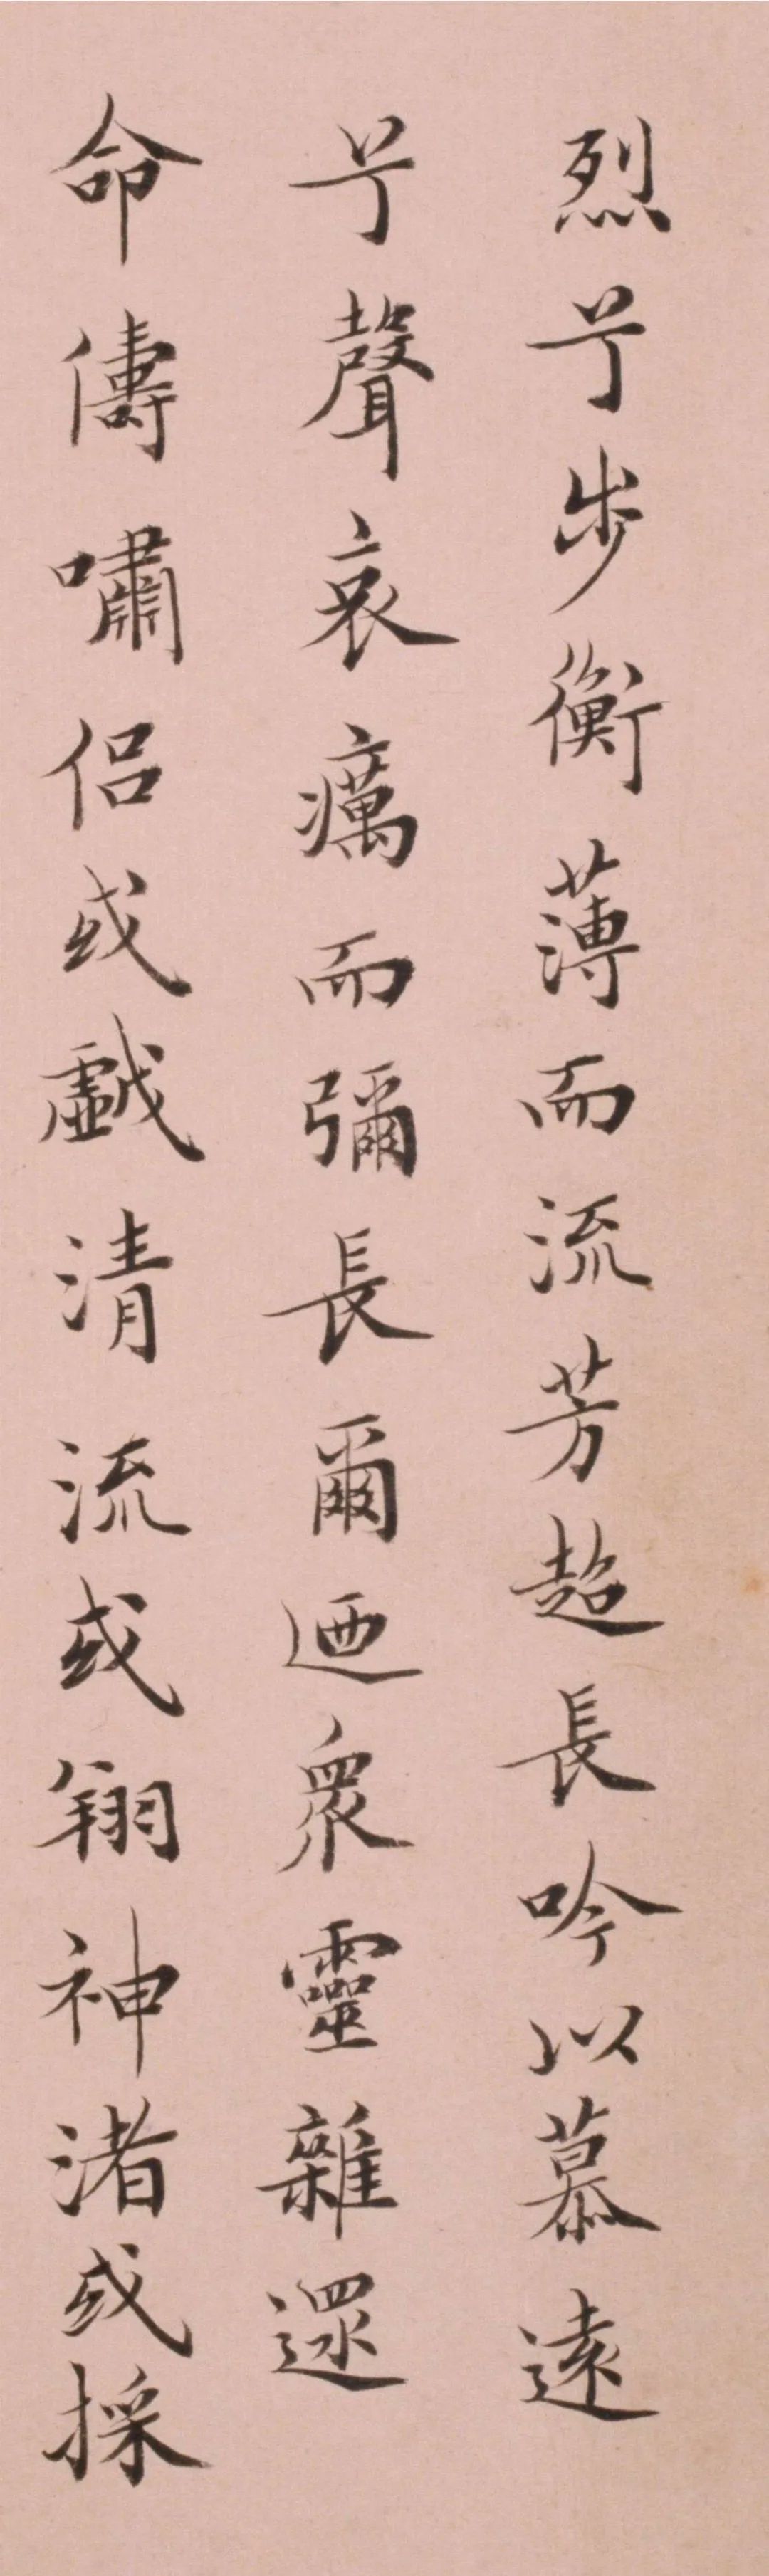 烈兮步衡薄而流芳超長吟以慕遠
兮聲哀癘而彌長爾迺衆靈雜遝
命儔嘯侣或戲清流或翔神渚或採